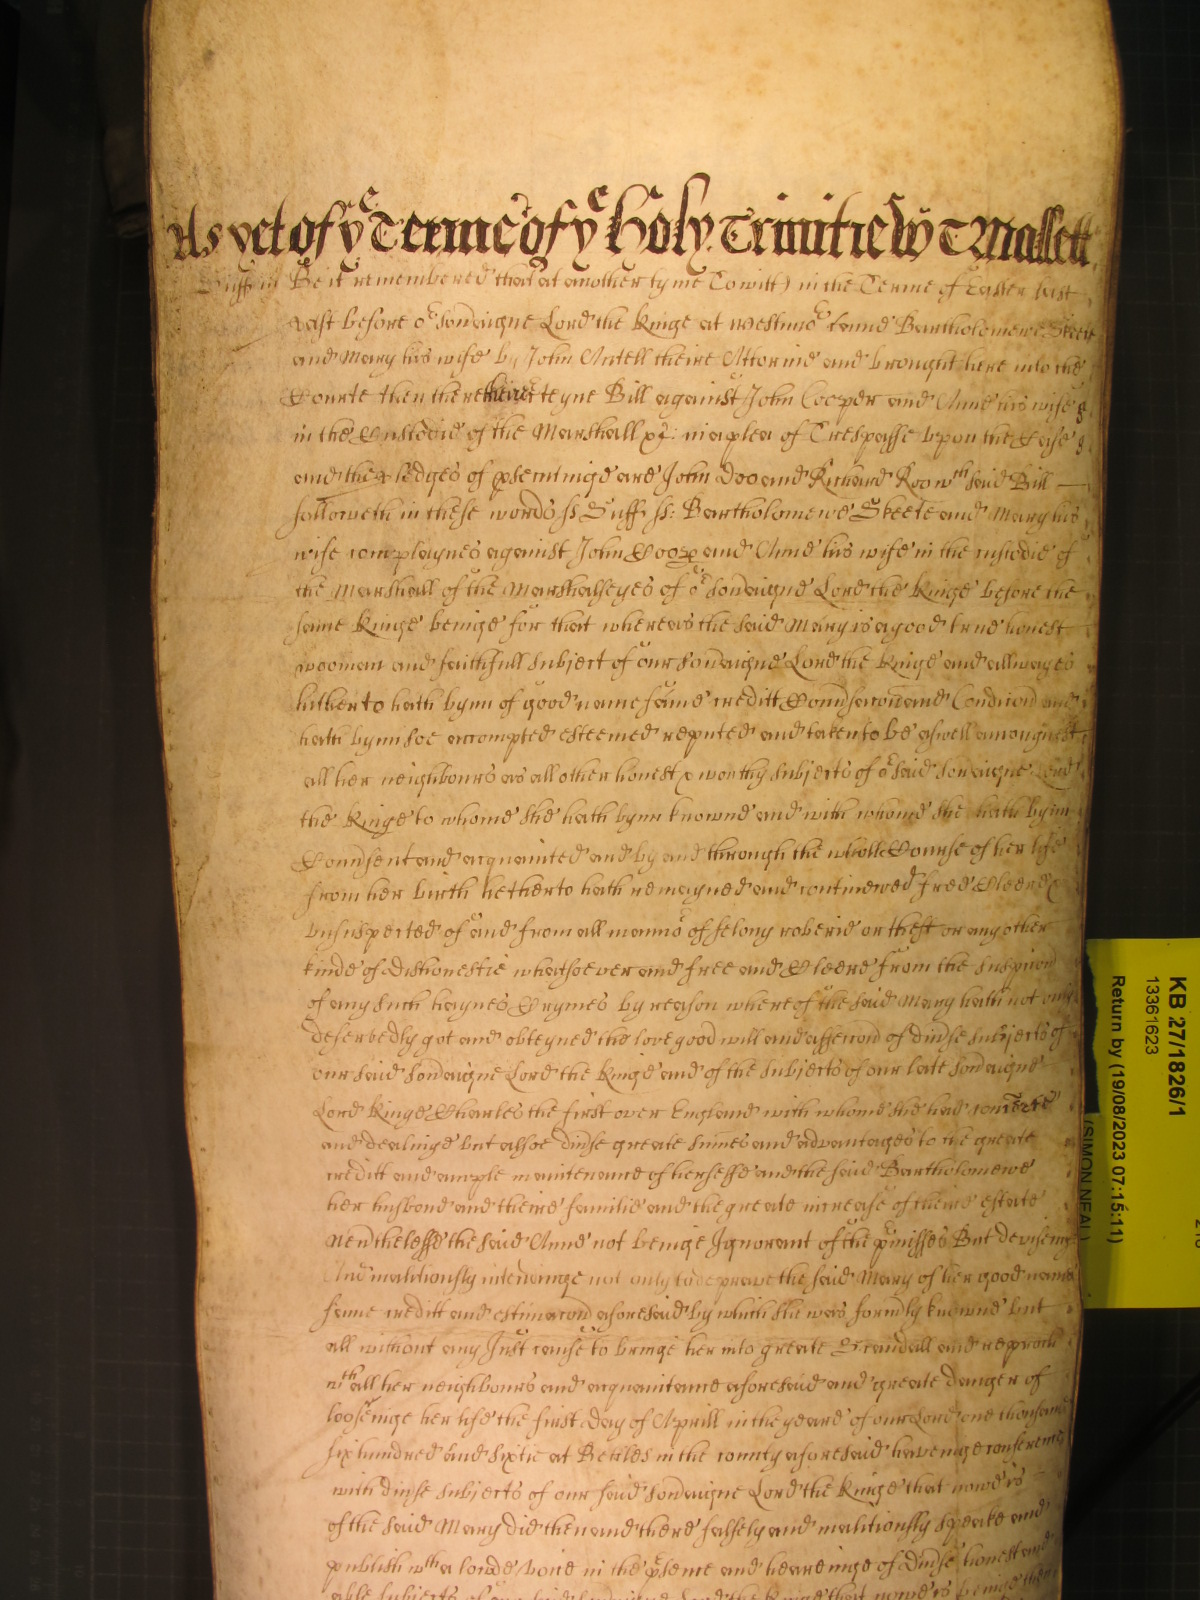 As yet of yᵉ Terme of yᵉ Holy Trinitie Wᵗ T Mallett
Suff ss Be it remembered that at another tyme Towitt in the Terme of Easter last
past before oʳ soveraigne Lord the Kinge at Westmʳ came Bartholomewe Skeete
and Mary his wife by John Antell theire Attorine and brought here into the
Courte then there theire certeyne Bill against John Cooper and Anne his wife
in the Custodie of the Marshall &c: in a plea of Trespasse upon the Case
and the pledges of psecutinge are John Doo and Richard Roo wᶜʰ said Bill
followeth in these words ss Suff ss: Bartholomewe Skeete and Mary his
wife complaynes against John Coop and Anne his wife in the custodie of
the Marshall of the Marshalseyes of oʳ soveraigne Lord the Kinge before the
same Kinge beinge for that whereas the said Mary is a good true honest
wooman and faithfull subject of our soveraigne Lord the Kinge and allwayes
hitherto hath bynn of good name fame creditt Convsacon and Condicon and
hath bynn soe accompted esteemed reputed and taken to be aswell amoungest
all her neighbours as all other honest & worthy subjects of oʳ said soveraigne Lord
the Kinge to whome she hath bynn knowne and with whome she hath bynn
Convsent and acquainted and by and through the whole Course of her life
from her birth hetherto hath remayned and continewed free Cleere &
unsuspected of and from all manner of felony roberie or theft or any other
kinde of dishonestie whatsoever and free and Cleere from the suspicion
of any such haynes Crymes by reason whereof the said Mary hath not only
deservedly got and obteyned the love good will and affeccon of divse subjects of
our said soveraigne Lord the Kinge and of the subjects of our late soveraigne
Lord Kinge Charles the first over England with whome she had comerce
and dealinge but alsoe divse greate sumes and advantages to the greate
creditt and ample maintenance of herselfe and the said Bartholomewe
her husbond and theire familie and the greate increase of theire estate
Neverthelesse the said Anne not beinge Ignorant of the pmisses But devisinge
And malitiously intendinge not only to deprave the said Mary of her good name
fame creditt and estimacon aforesaid by which she was formly knowne but
all without any Just cause to bringe her into greate Scandall and reproch
wᵗʰ all her neighbours and acquaintance aforesaid and greate danger of
loosenige her life the first day of Aprill in the yeare of our Lord one thousand
six hundred and sixtie at Beccles in the county aforesaid haveinge conference
with divse subjects of our said soveraigne Lord the Kinge that nowe is
of the said Mary did then and there falsely and malitiously speake and
publish wᵗʰ a loude voice in the psence and heareinge of divse honest and
able subjects of our said soveraigne Lord the Kinge that nowe is beinge then
KB 27/1826/1
13361623
Return by (19/08/2023 07:15:11)
(SIMON NEAL)